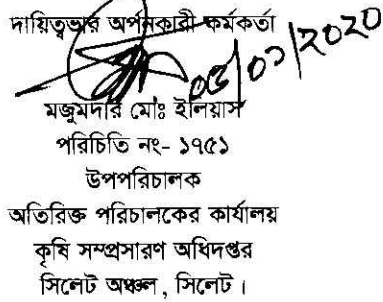 দায়িত্বভার অর্পনকারী কর্মকর্তা
মজুমদার মোঃ ইলিয়াস
পরিচিতি নং- ১৭৫১
উপপরিচালক
অতিরিক্ত পরিচালকের কার্যালয়
কৃষি সম্প্রসারণ অধিদপ্তর
সিলেট অঞ্চল, সিলেট।